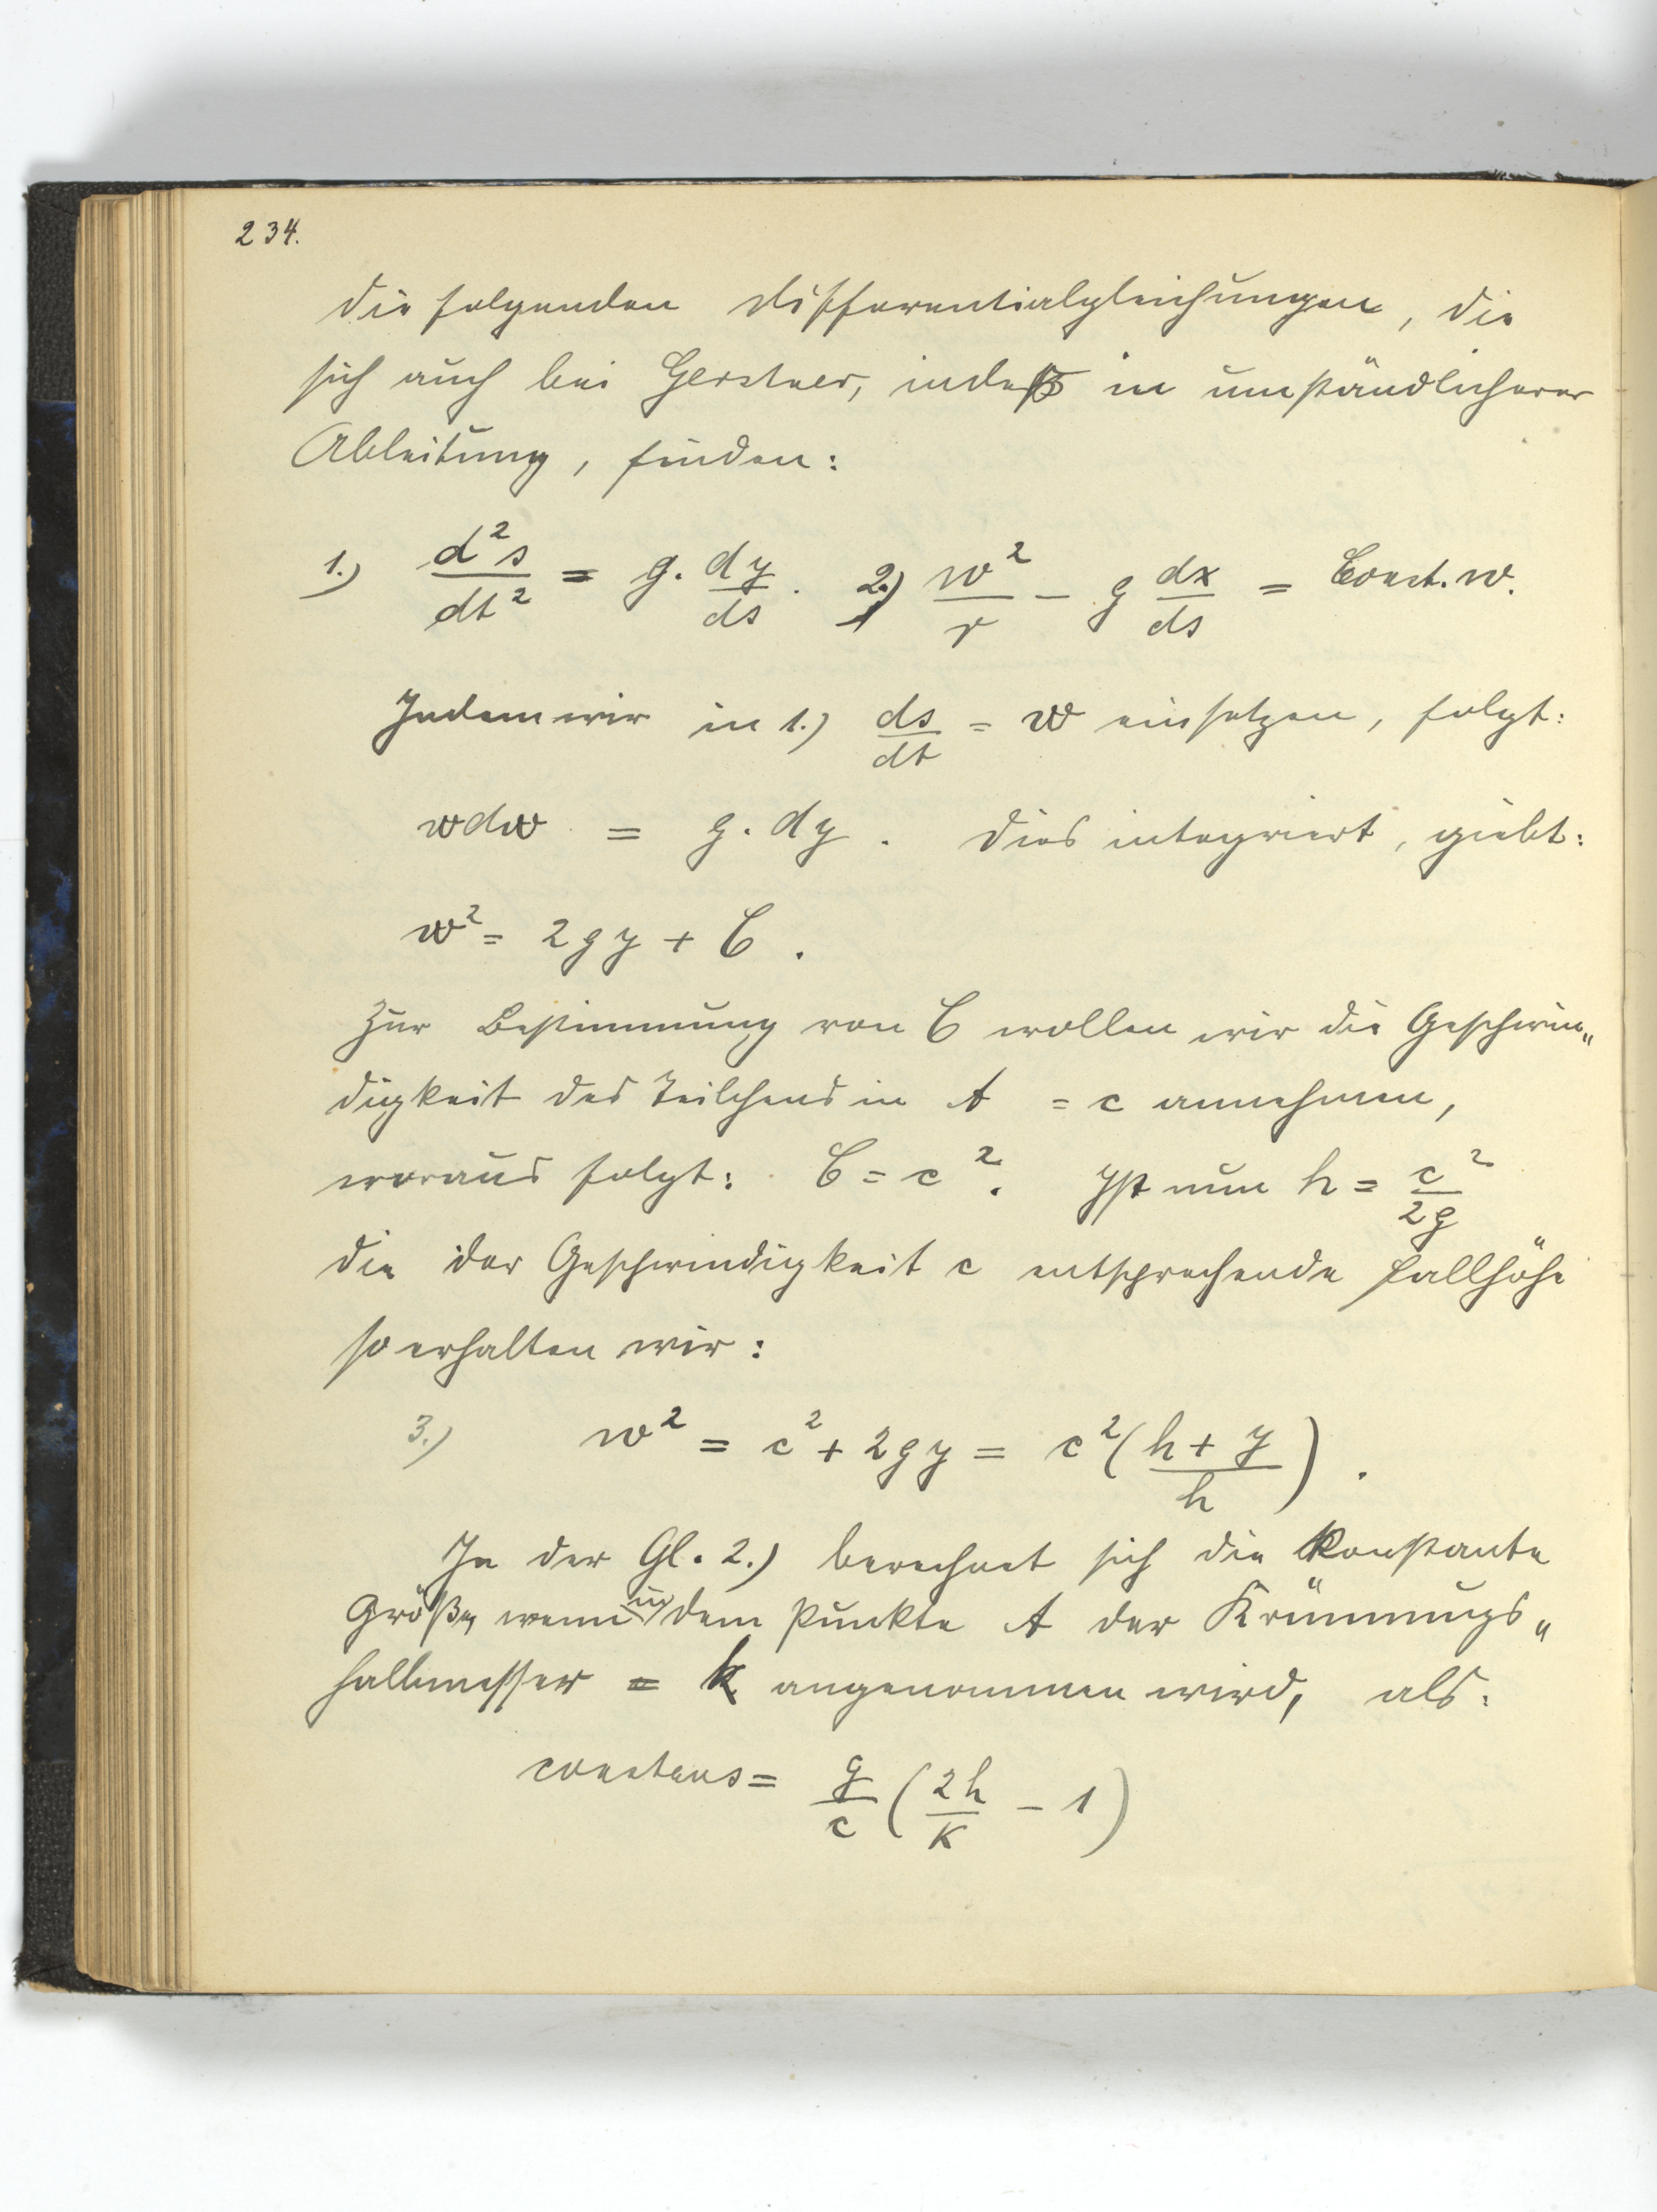 234.
die folgenden Differentialgleichungen, die
sich auch bei Gerstner, indeß in umständlicherer
Ableitung, finden:
1.) d²s/dt² = g. dy/ds. 2.) w²/r - g dx/ds = Const. w.
Indem wir in 1.) ds/dt = w einsetzen, folgt:
wdw = g. dy. Dies integriert, giebt:
w² = 2gy + C.
Zur Bestimmung von C wollen wir die Geschwin„
digkeit des Teilchens in A = c annehmen,
woraus folgt: C = c². Ist nun h = c²/2g
die der Geschwindigkeit c entsprechende Fallhöhe
so erhalten wir:
3.) w² = c² + 2gy = c² (h + y/h).
In der Gl. 2.) berechnet sich die konstante
Größe, wenn in dem Punkte A der Krümmungs„
halbmesser = k angenommen wird, als:
constans = g/c (2h/k - 1)